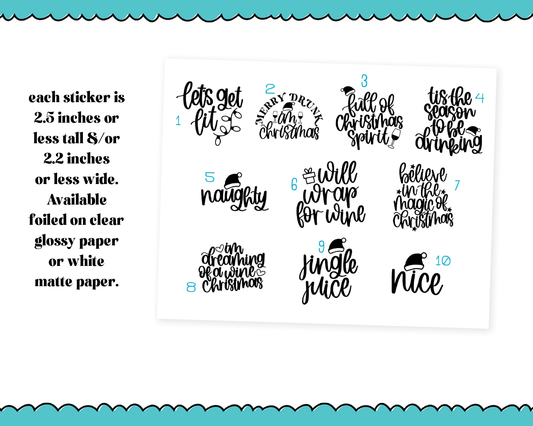 each sticker is
2.5 inches or
less tall &/or
2.2 inches
or less wide.
Available
foiled on clear
glossy paper
or white
matte paper.
1
let's get
lit
2
MERRY DRUNK
im
christmas
3
full of
christmas
spirit
4
tis the
season
to be
drinking
5
naughty
6
will
wrap
for wine
7
believe
in the
magic of
christmas
8
im
dreaming
of a wine
christmas
9
jingle
juice
10
nice